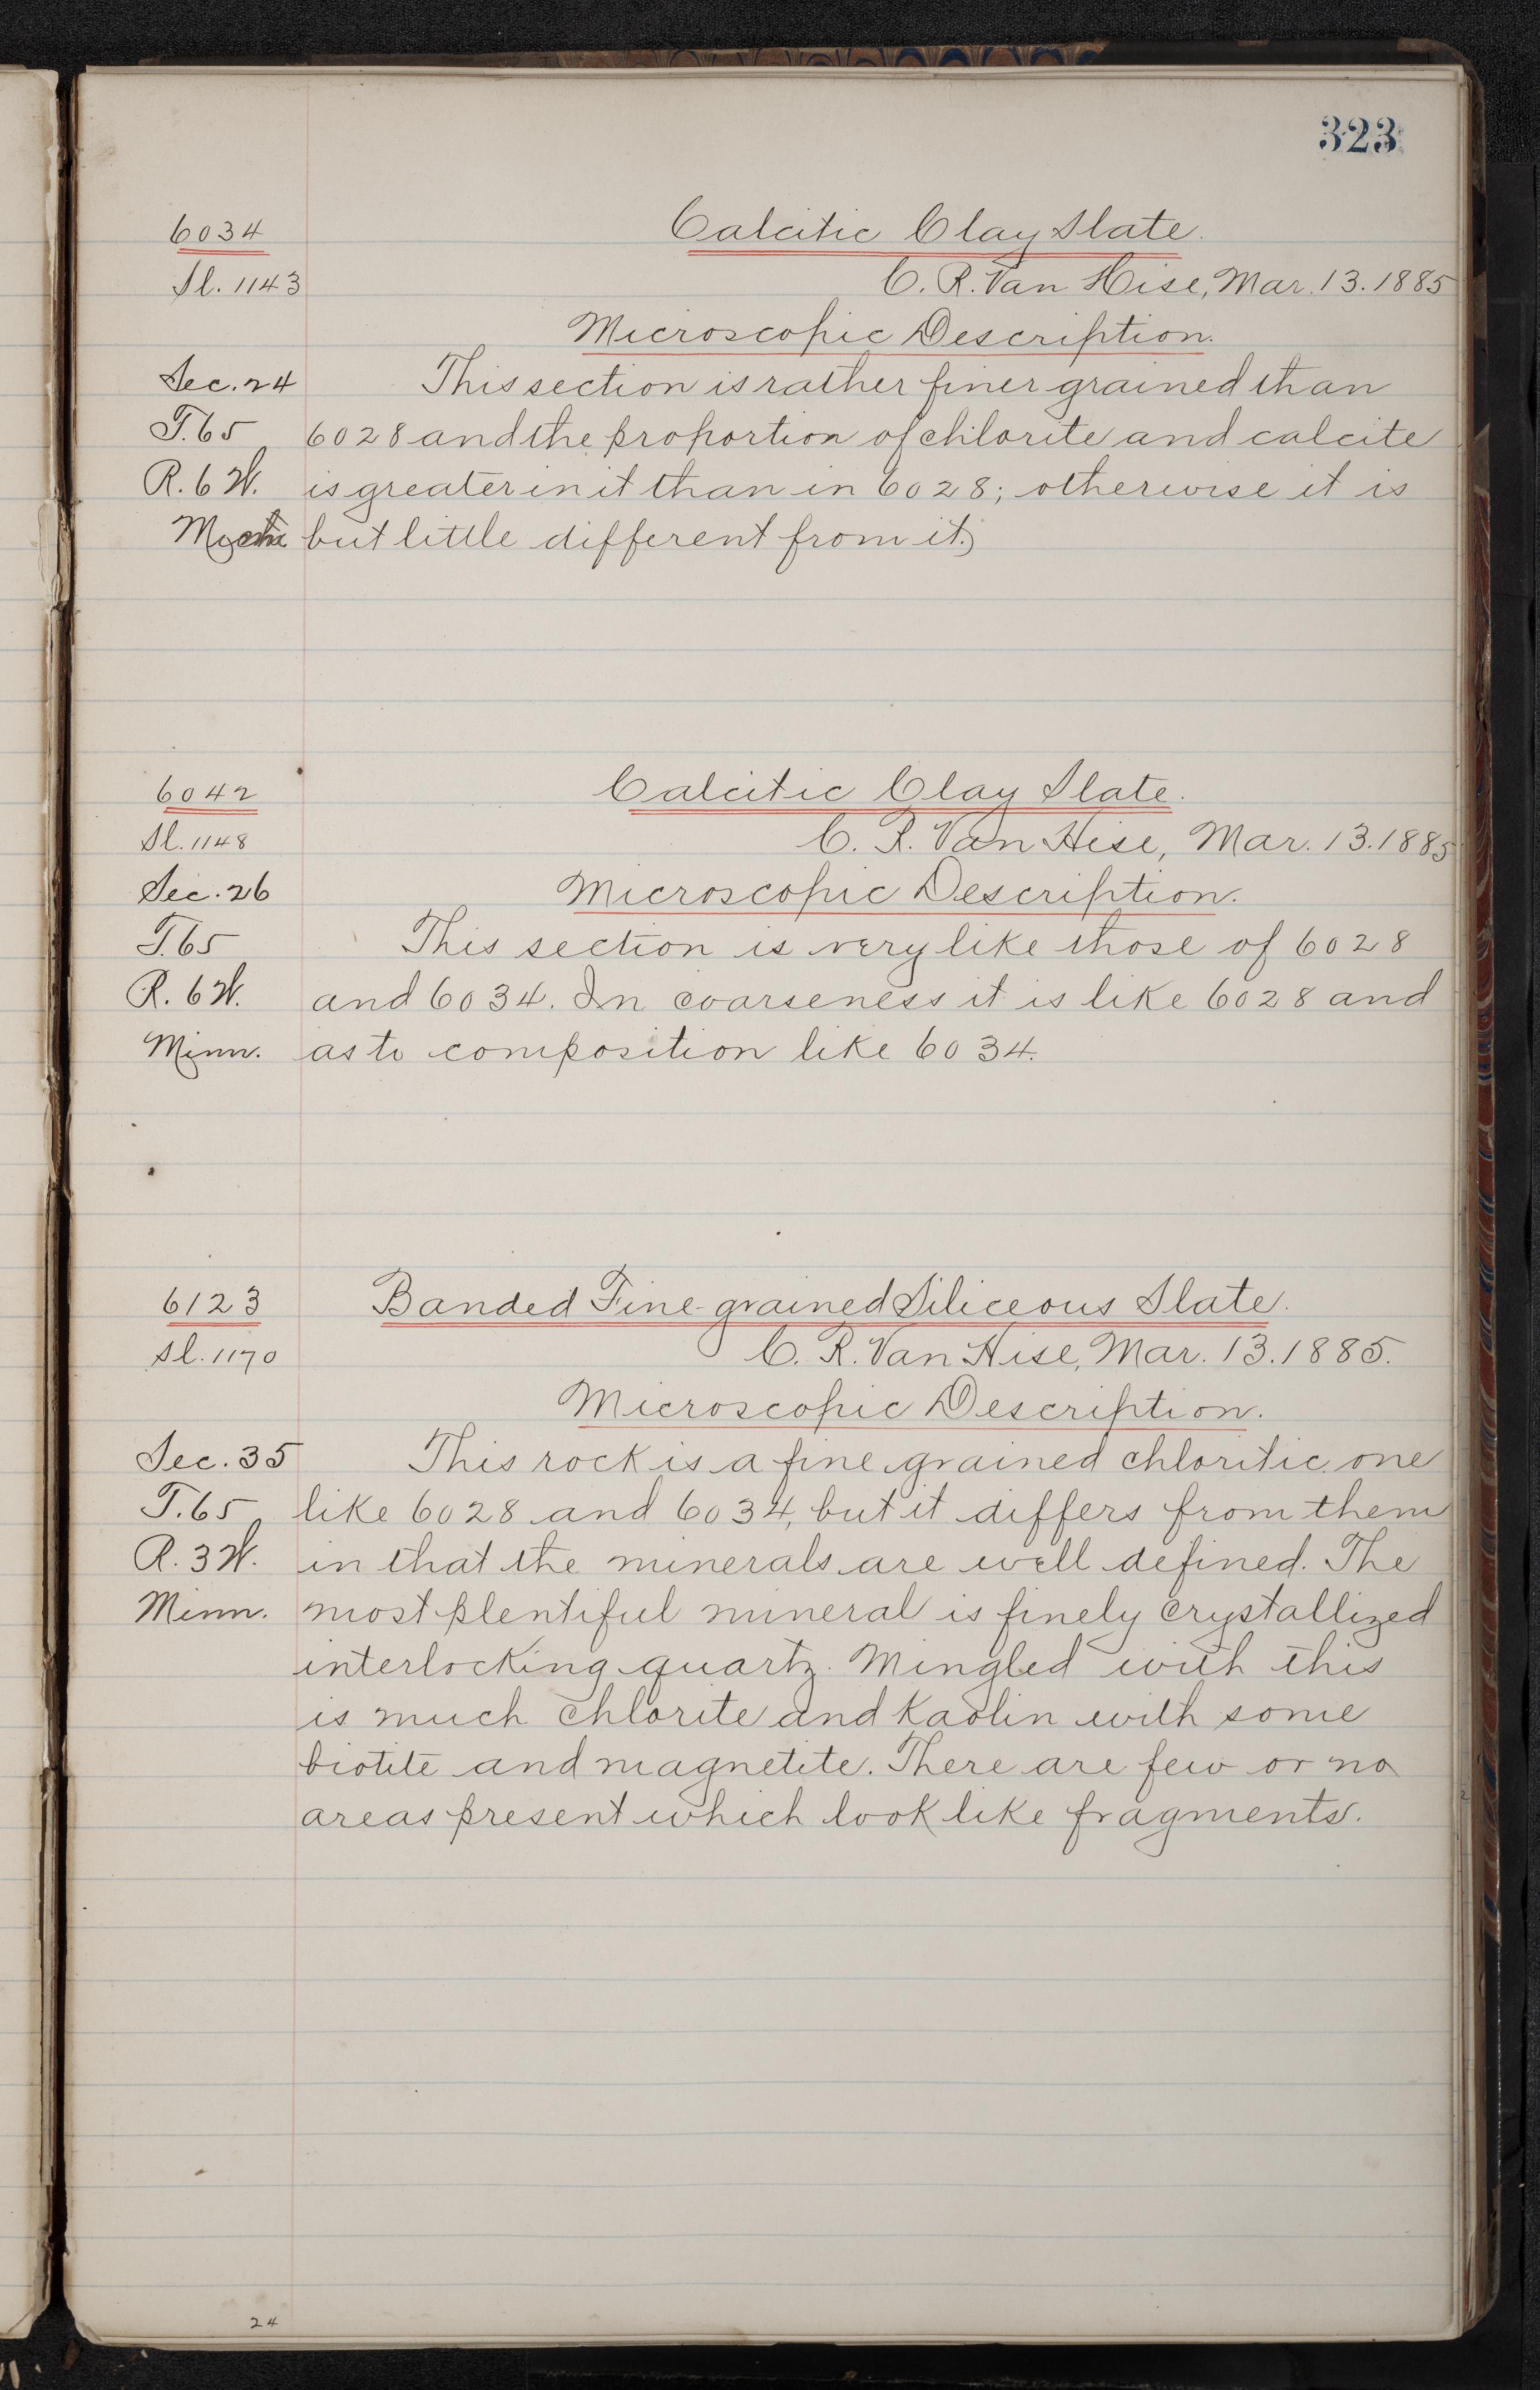 323
6034 Calcitic Clay Slate.
Sl. 1143 C. R. Van Hise, Mar. 13. 1885
Microscopic Description.
Sec. 24 This section is rather finer grained than
T. 65 6028 and the proportion of chlorite and calcite
R. 6 W. is greater in it than in 6028; otherwise it is
but little different from it.
6042 Calcitic Clay Slate.
Sl. 1148 C. R. Van Hise, Mar. 13. 1885
Sec. 26 Microscopic Description.
T. 65 This section is very like those of 6028
R. 6 W. and 6034. In coarseness it is like 6028 and
Minn. as to composition like 6034.
6123 Banded Fine-grained Siliceous Slate.
Sl. 1170 C. R. Van Hise, Mar. 13. 1885.
Microscopic Description.
Sec. 35 This rock is a fine grained chloritic one
T. 65 like 6028 and 6034, but it differs from them
R. 3 W. in that the minerals are well defined. The
Minn. most plentiful mineral is finely crystallized
interlocking quartz. Mingled with this
is much chlorite and Kaolin with some
biotite and magnetite. There are few or no
areas present which look like fragments.
24